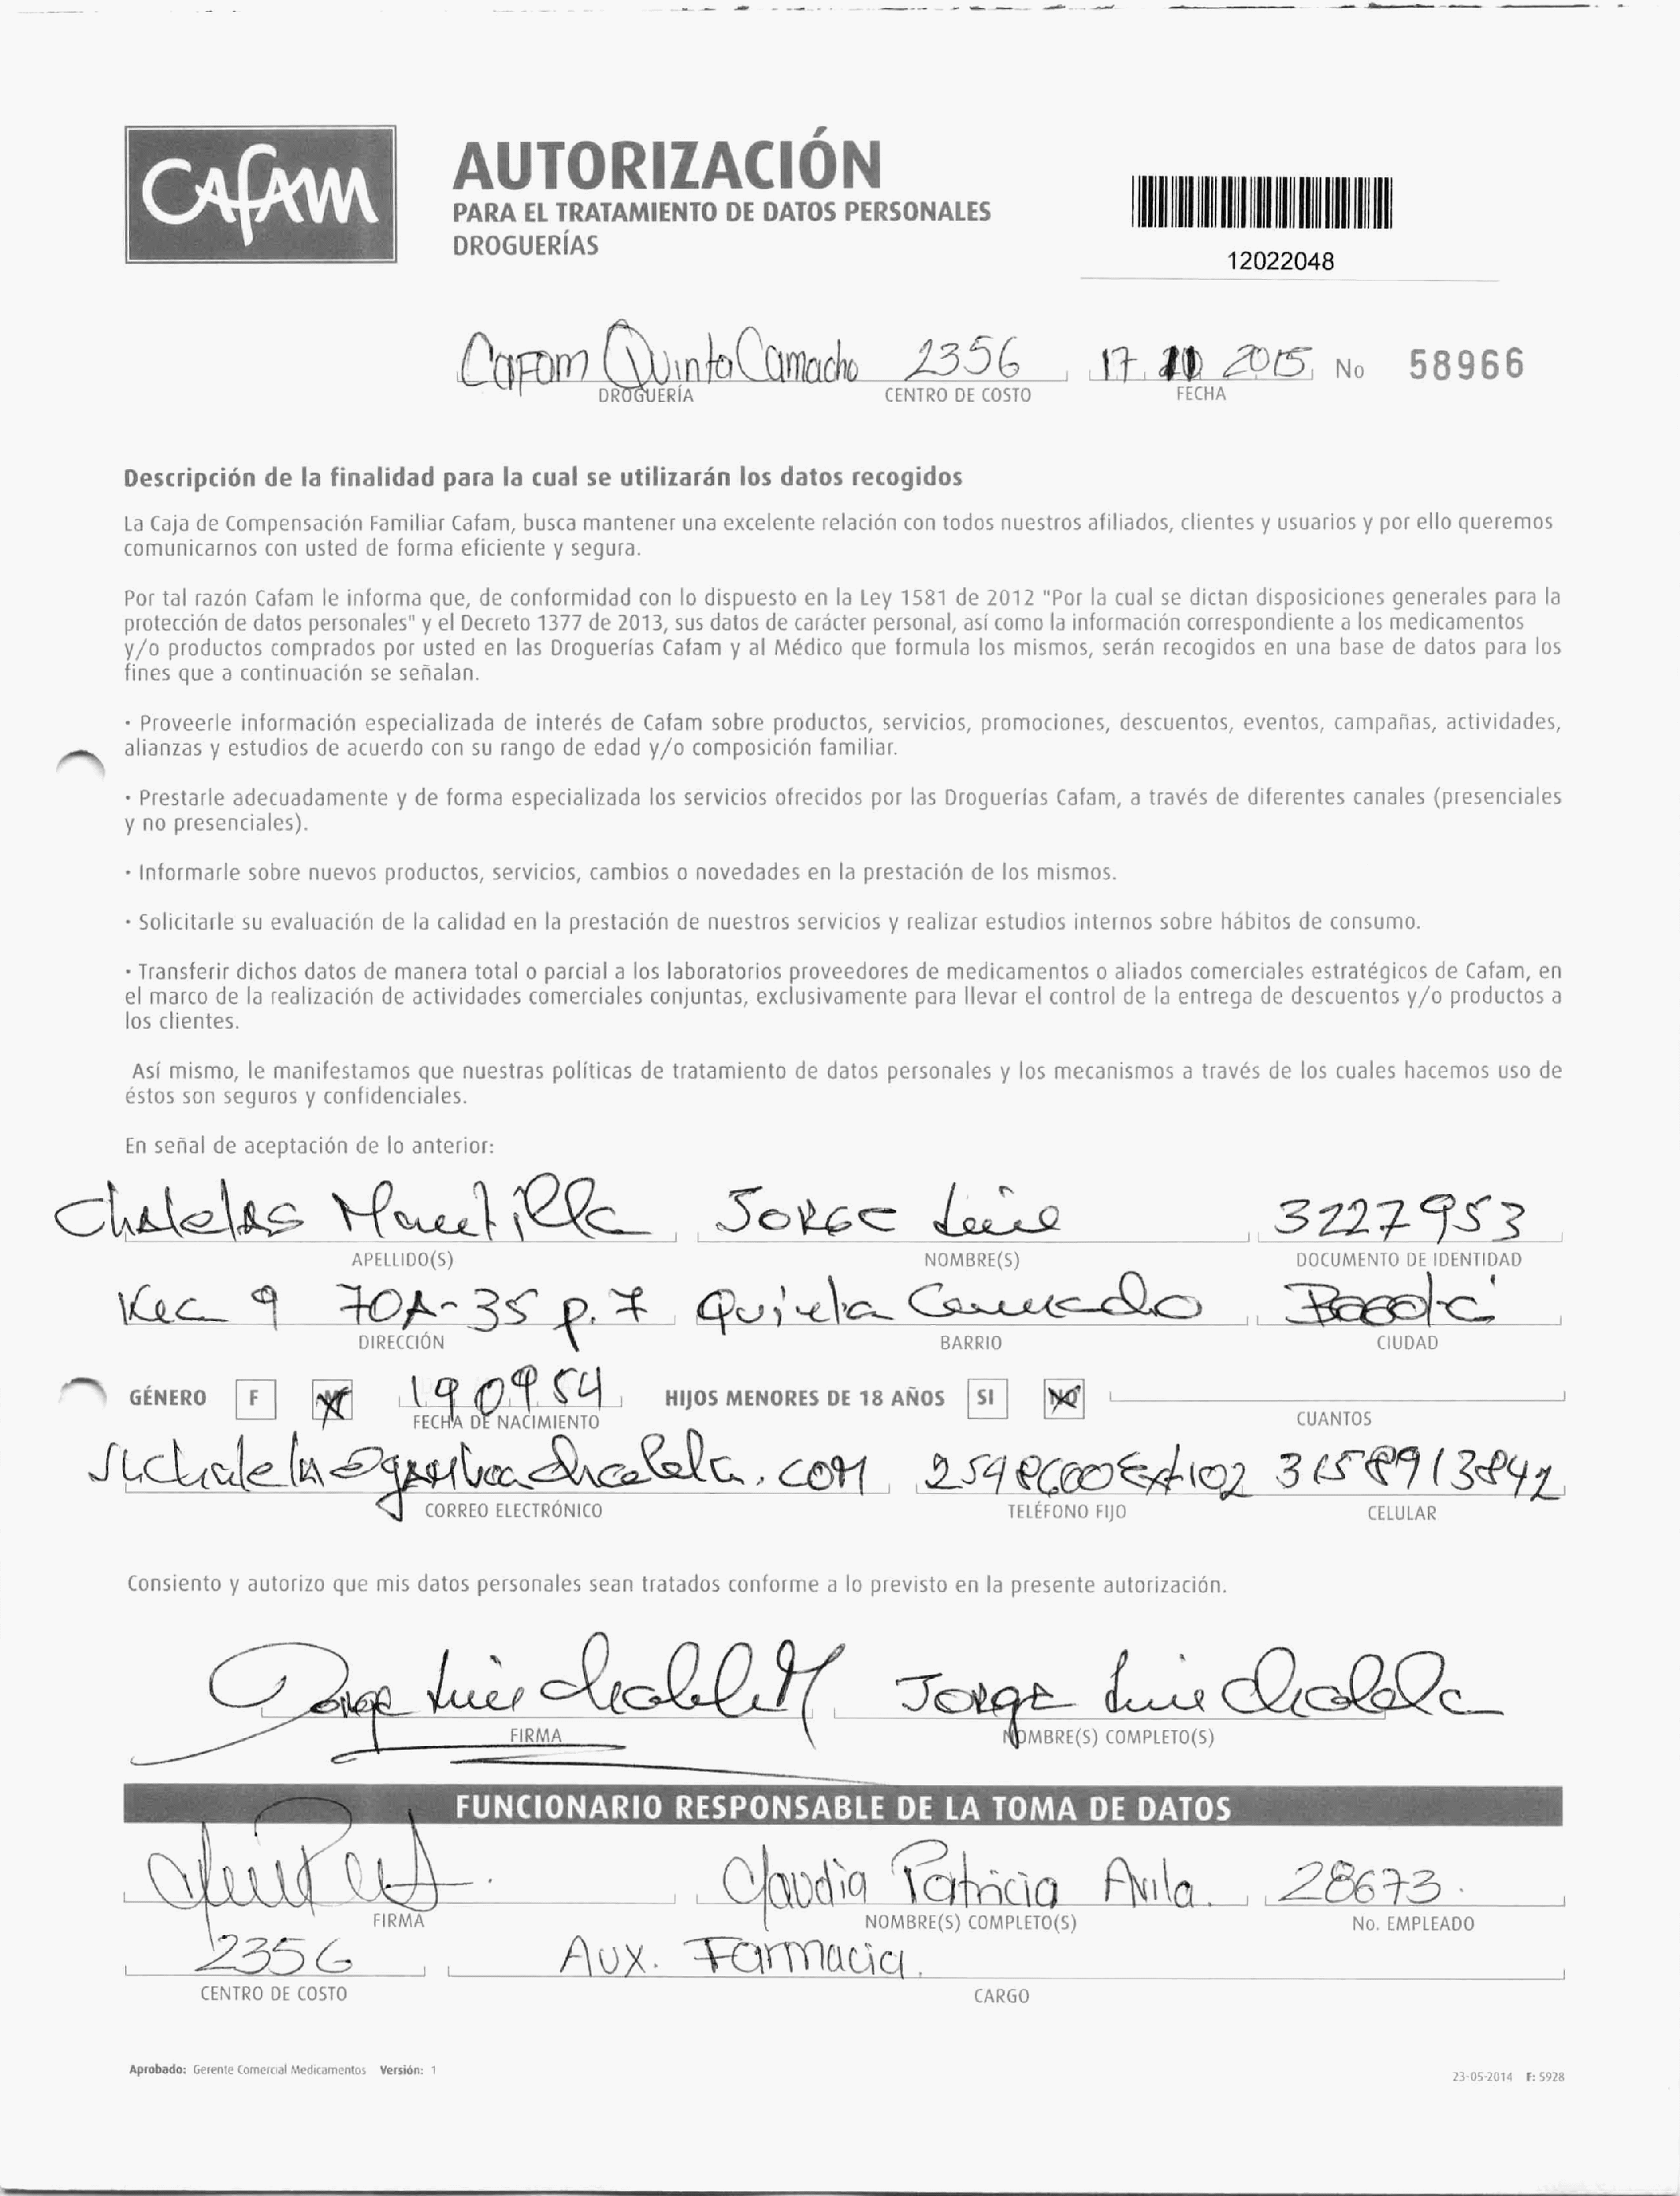 CAFAM
AUTORIZACIÓN
PARA EL TRATAMIENTO DE DATOS PERSONALES
DROGUERÍAS
12022048
Cafam Quinta Camacho 2356 17 2015 No 58966
DROGUERÍA CENTRO DE COSTO FECHA
Descripción de la finalidad para la cual se utilizarán los datos recogidos
La Caja de Compensación Familiar Cafam, busca mantener una excelente relación con todos nuestros afiliados, clientes y usuarios y por ello queremos
comunicarnos con usted de forma eficiente y segura.
Por tal razón Cafam le informa que, de conformidad con lo dispuesto en la Ley 1581 de 2012 "Por la cual se dictan disposiciones generales para la
protección de datos personales" y el Decreto 1377 de 2013, sus datos de carácter personal, así como la información correspondiente a los medicamentos
y/o productos comprados por usted en las Droguerías Cafam y al Médico que formula los mismos, serán recogidos en una base de datos para los
fines que a continuación se señalan.
· Proveerle información especializada de interés de Cafam sobre productos, servicios, promociones, descuentos, eventos, campañas, actividades,
alianzas y estudios de acuerdo con su rango de edad y/o composición familiar.
· Prestarle adecuadamente y de forma especializada los servicios ofrecidos por las Droguerías Cafam, a través de diferentes canales (presenciales
y no presenciales).
· Informarle sobre nuevos productos, servicios, cambios o novedades en la prestación de los mismos.
· Solicitarle su evaluación de la calidad en la prestación de nuestros servicios y realizar estudios internos sobre hábitos de consumo.
· Transferir dichos datos de manera total o parcial a los laboratorios proveedores de medicamentos o aliados comerciales estratégicos de Cafam, en
el marco de la realización de actividades comerciales conjuntas, exclusivamente para llevar el control de la entrega de descuentos y/o productos a
los clientes.
Así mismo, le manifestamos que nuestras políticas de tratamiento de datos personales y los mecanismos a través de los cuales hacemos uso de
éstos son seguros y confidenciales.
En señal de aceptación de lo anterior:
Mantilla Jorge Luis 3227953
APELLIDO(S) NOMBRE(S) DOCUMENTO DE IDENTIDAD
9 70A-35 p. 7 Quinta Camacho Bogotá
DIRECCIÓN BARRIO CIUDAD
GÉNERO F M 190954 HIJOS MENORES DE 18 AÑOS SI NO
FECHA DE NACIMIENTO CUANTOS
Ext 102 3158913842
CORREO ELECTRÓNICO TELÉFONO FIJO CELULAR
Consiento y autorizo que mis datos personales sean tratados conforme a lo previsto en la presente autorización.
Jorge Luis Jorge Luis
FIRMA NOMBRE(S) COMPLETO(S)
FUNCIONARIO RESPONSABLE DE LA TOMA DE DATOS
Claudia Patricia Avila. 28673.
FIRMA NOMBRE(S) COMPLETO(S) No. EMPLEADO
2356 Aux. Farmacia.
CENTRO DE COSTO CARGO
Aprobado: Gerente Comercial Medicamentos Versión: 1
23-05-2014 F: 5928